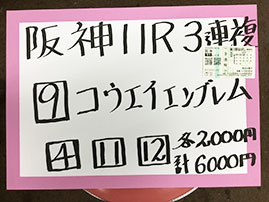 阪神11R3連複
9 コウエイエンブレム
4 11 12 各2,000円
計6000円